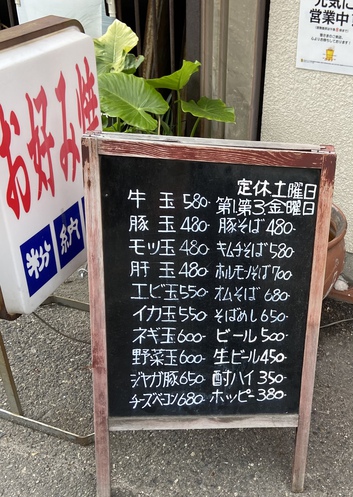 お好み焼
粉
元気に
営業中!
定休土曜日
第1.第3.金曜日
牛玉 580-
豚玉 480
モツ玉 480
肝玉 480
エビ玉 550
イカ玉 550
ネギ玉 600-
野菜玉 600-
ジャガ豚 650
チーズベーコン 680-
豚そば 480-
キムチそば 580
ホルモンそば 700
オムそば 680-
そばめし 650-
ビール 500
生ビール 450
酎ハイ 350-
ホッピー 380-